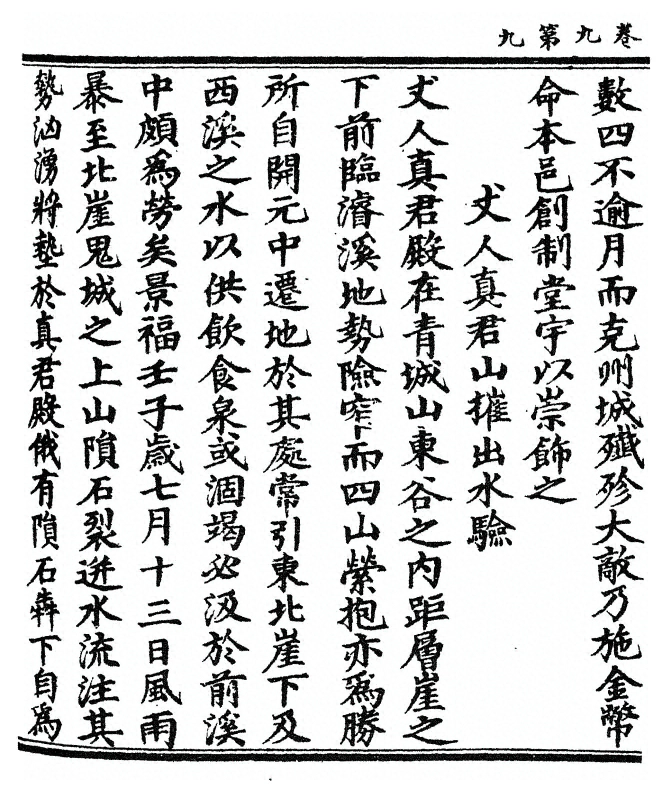 卷九第九
數四不逾月而克州城殲殄大敵乃施金幣
命本邑創制堂宇以崇飾之
丈人真君山摧出水驗
丈人真君殿在青城山東谷之內距層崖之
下前臨濬溪地勢險窄而四山縈抱亦爲勝
所自開元中遷地於其處常引東北崖下及
西溪之水以供飲食泉或涸竭必汲於前溪
中頗爲勞矣景福壬子歲七月十三日風雨
暴至北崖鬼城之上山隕石裂迸水流注其
勢汹湧將墊於真君殿俄有隕石犇下自爲